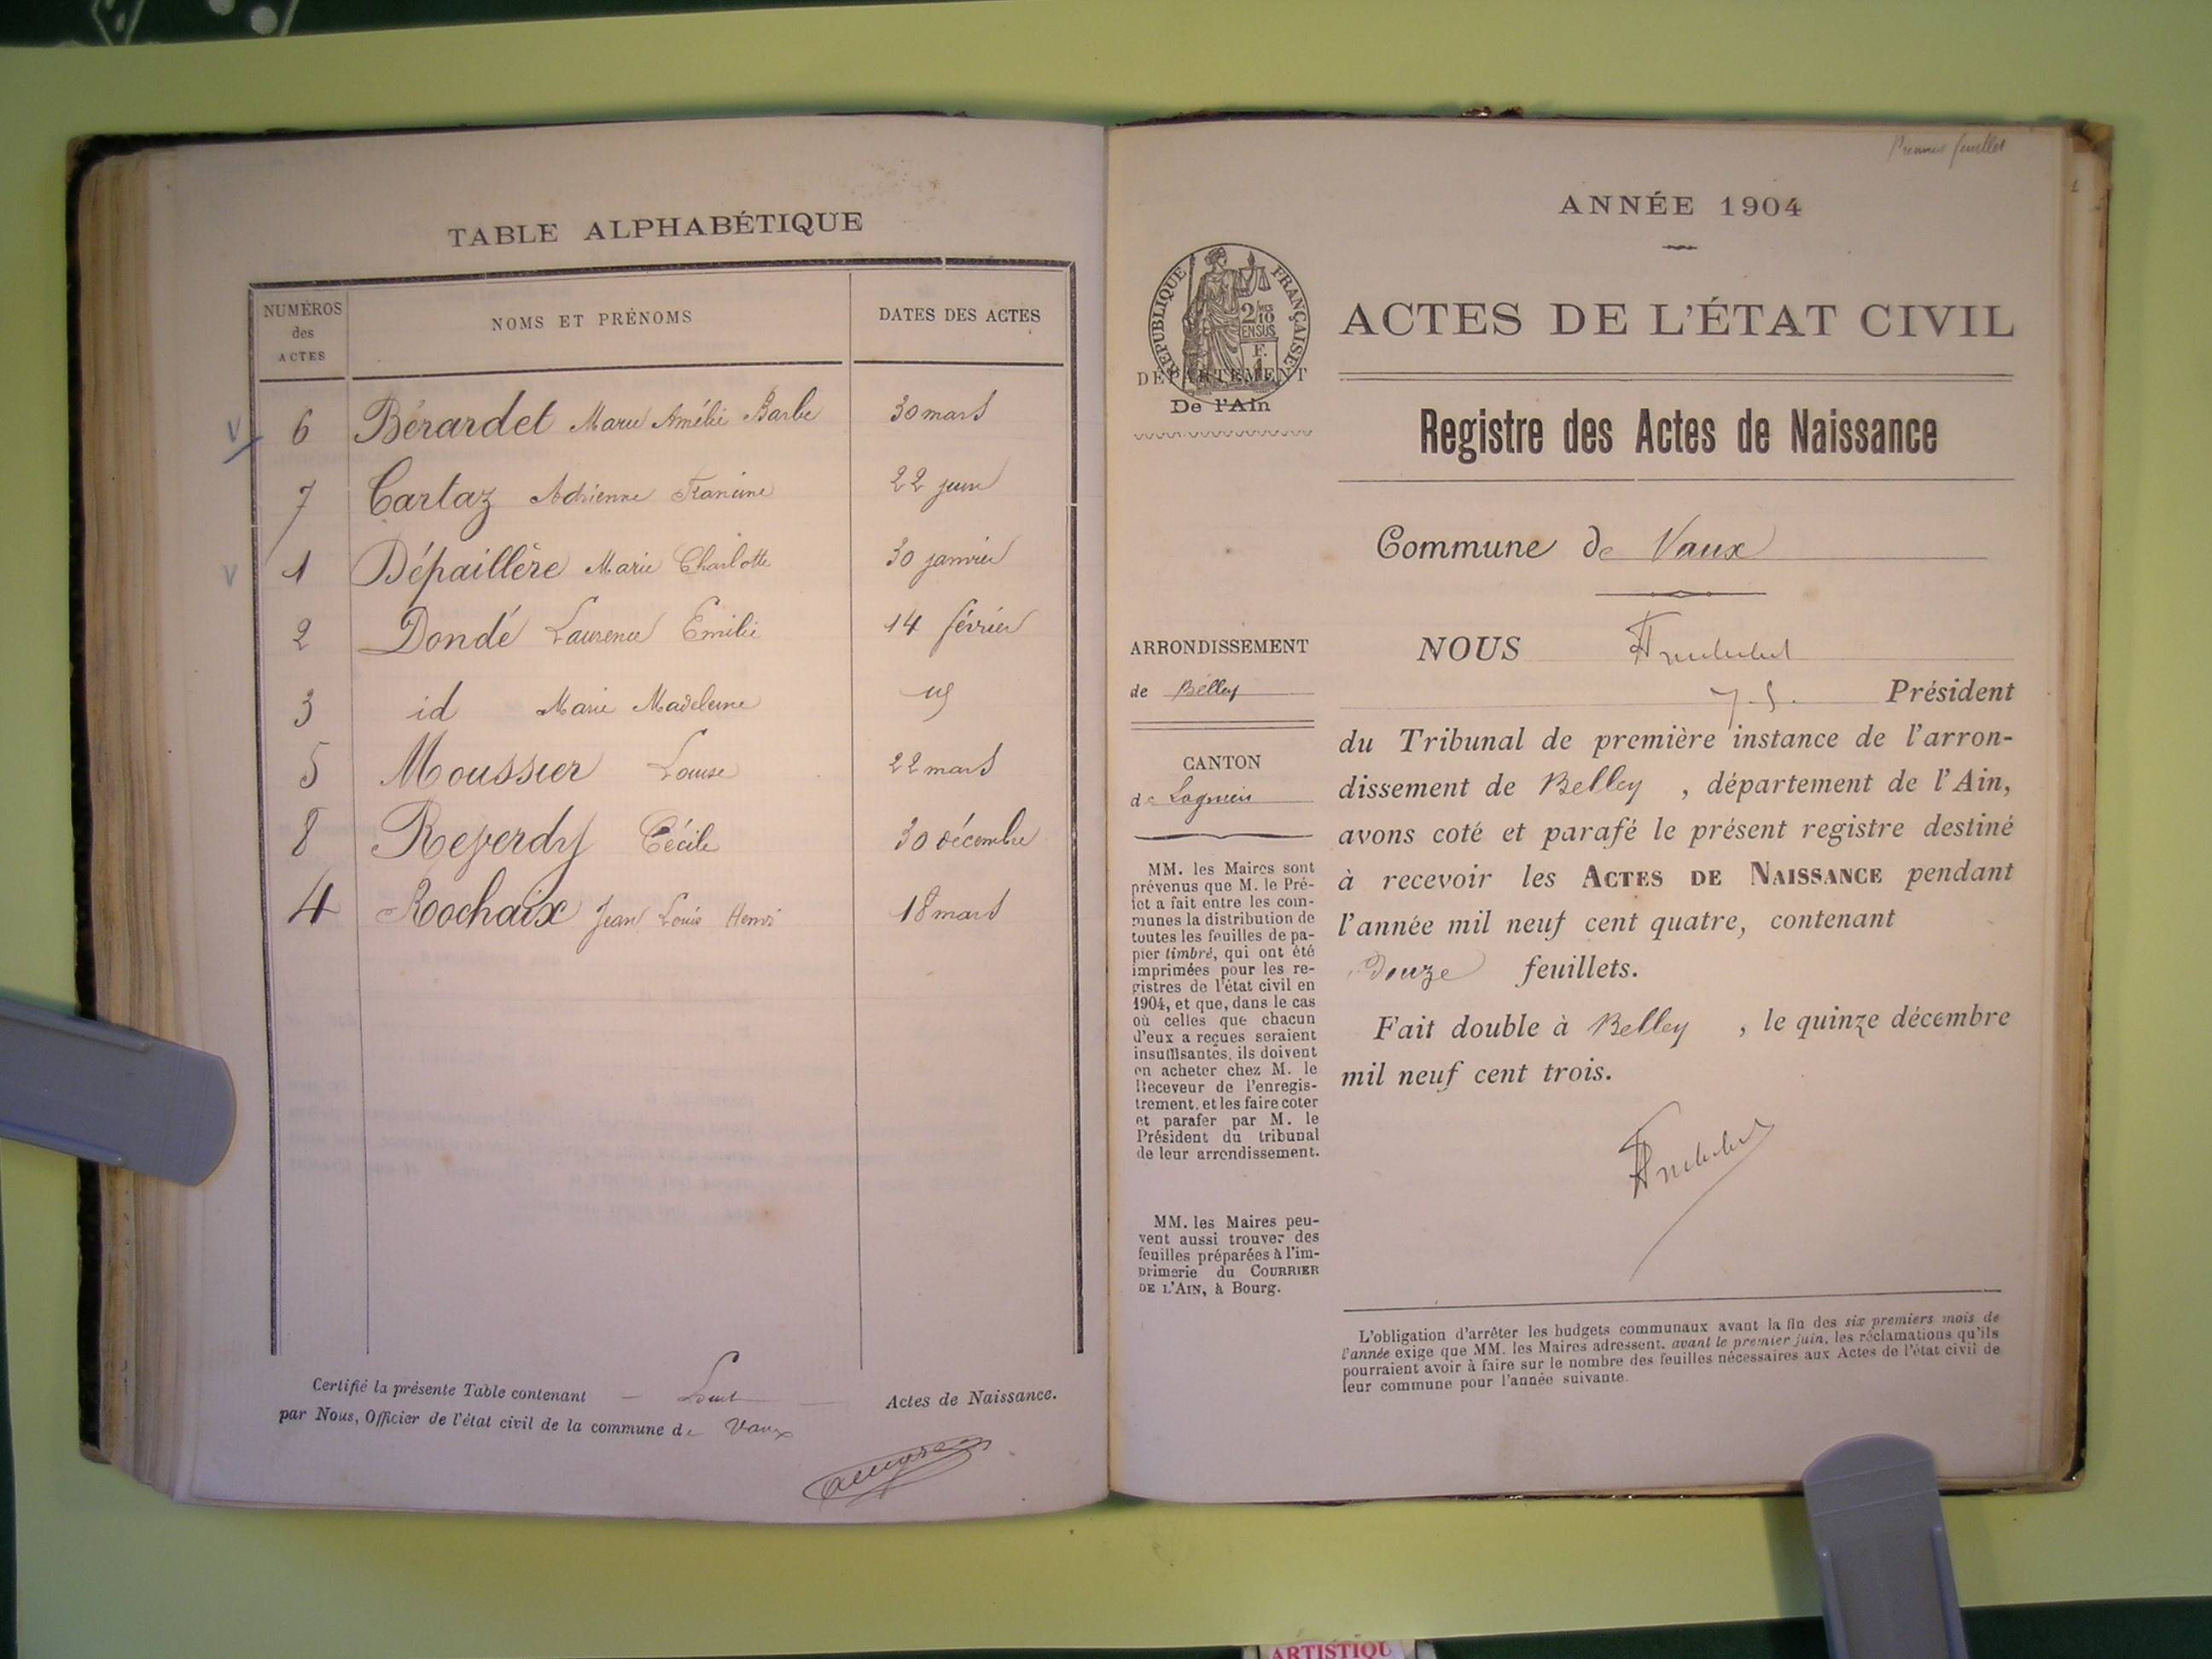 TABLE ALPHABÉTIQUE
NUMÉROS des ACTES
NOMS ET PRÉNOMS
DATES DES ACTES
6 Bérardet Marie Amélie Barbe 30 mars
7 Cartaz Adrienne Francine 22 juin
1 Dépaillère Marie Charlotte 30 janvier
2 Dondé Laurence Emilie 14 février
3 id Marie Madeleine
5 Moussier Louise 22 mars
8 Reverdy Cécile 30 décembre
4 Rochaix Jean Louis Henri 18 mars
Certifié la présente Table contenant — huit — Actes de Naissance.
par Nous, Officier de l'état civil de la commune de Vaux
Premier feuillet
ANNÉE 1904
RÉPUBLIQUE FRANÇAISE
2/10
EN SUS
F.
1
DÉPARTEMENT
De l'Ain
ACTES DE L'ÉTAT CIVIL
Registre des Actes de Naissance
Commune de Vaux
ARRONDISSEMENT
de Belley
CANTON
de Lagnieu
MM. les Maires sont
prévenus que M. le Pré-
fet a fait entre les com-
munes la distribution de
toutes les feuilles de pa-
pier timbré, qui ont été
imprimées pour les re-
gistres de l'état civil en
1904, et que, dans le cas
où celles que chacun
d'eux a reçues seraient
insuffisantes, ils doivent
en acheter chez M. le
Receveur de l'enregis-
trement, et les faire coter
et parafer par M. le
Président du tribunal
de leur arrondissement.
MM. les Maires peu-
vent aussi trouver des
feuilles préparées à l'im-
primerie du COURRIER
DE L'AIN, à Bourg.
NOUS
Président
du Tribunal de première instance de l'arron-
dissement de Belley , département de l'Ain,
avons coté et parafé le présent registre destiné
à recevoir les ACTES DE NAISSANCE pendant
l'année mil neuf cent quatre, contenant
Douze feuillets.
Fait double à Belley , le quinze décembre
mil neuf cent trois.
L'obligation d'arrêter les budgets communaux avant la fin des six premiers mois de
l'année exige que MM. les Maires adressent, avant le premier juin, les réclamations qu'ils
pourraient avoir à faire sur le nombre des feuilles nécessaires aux Actes de l'état civil de
leur commune pour l'année suivante.
ARTISTIQU